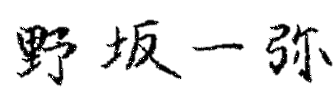 野坂一弥